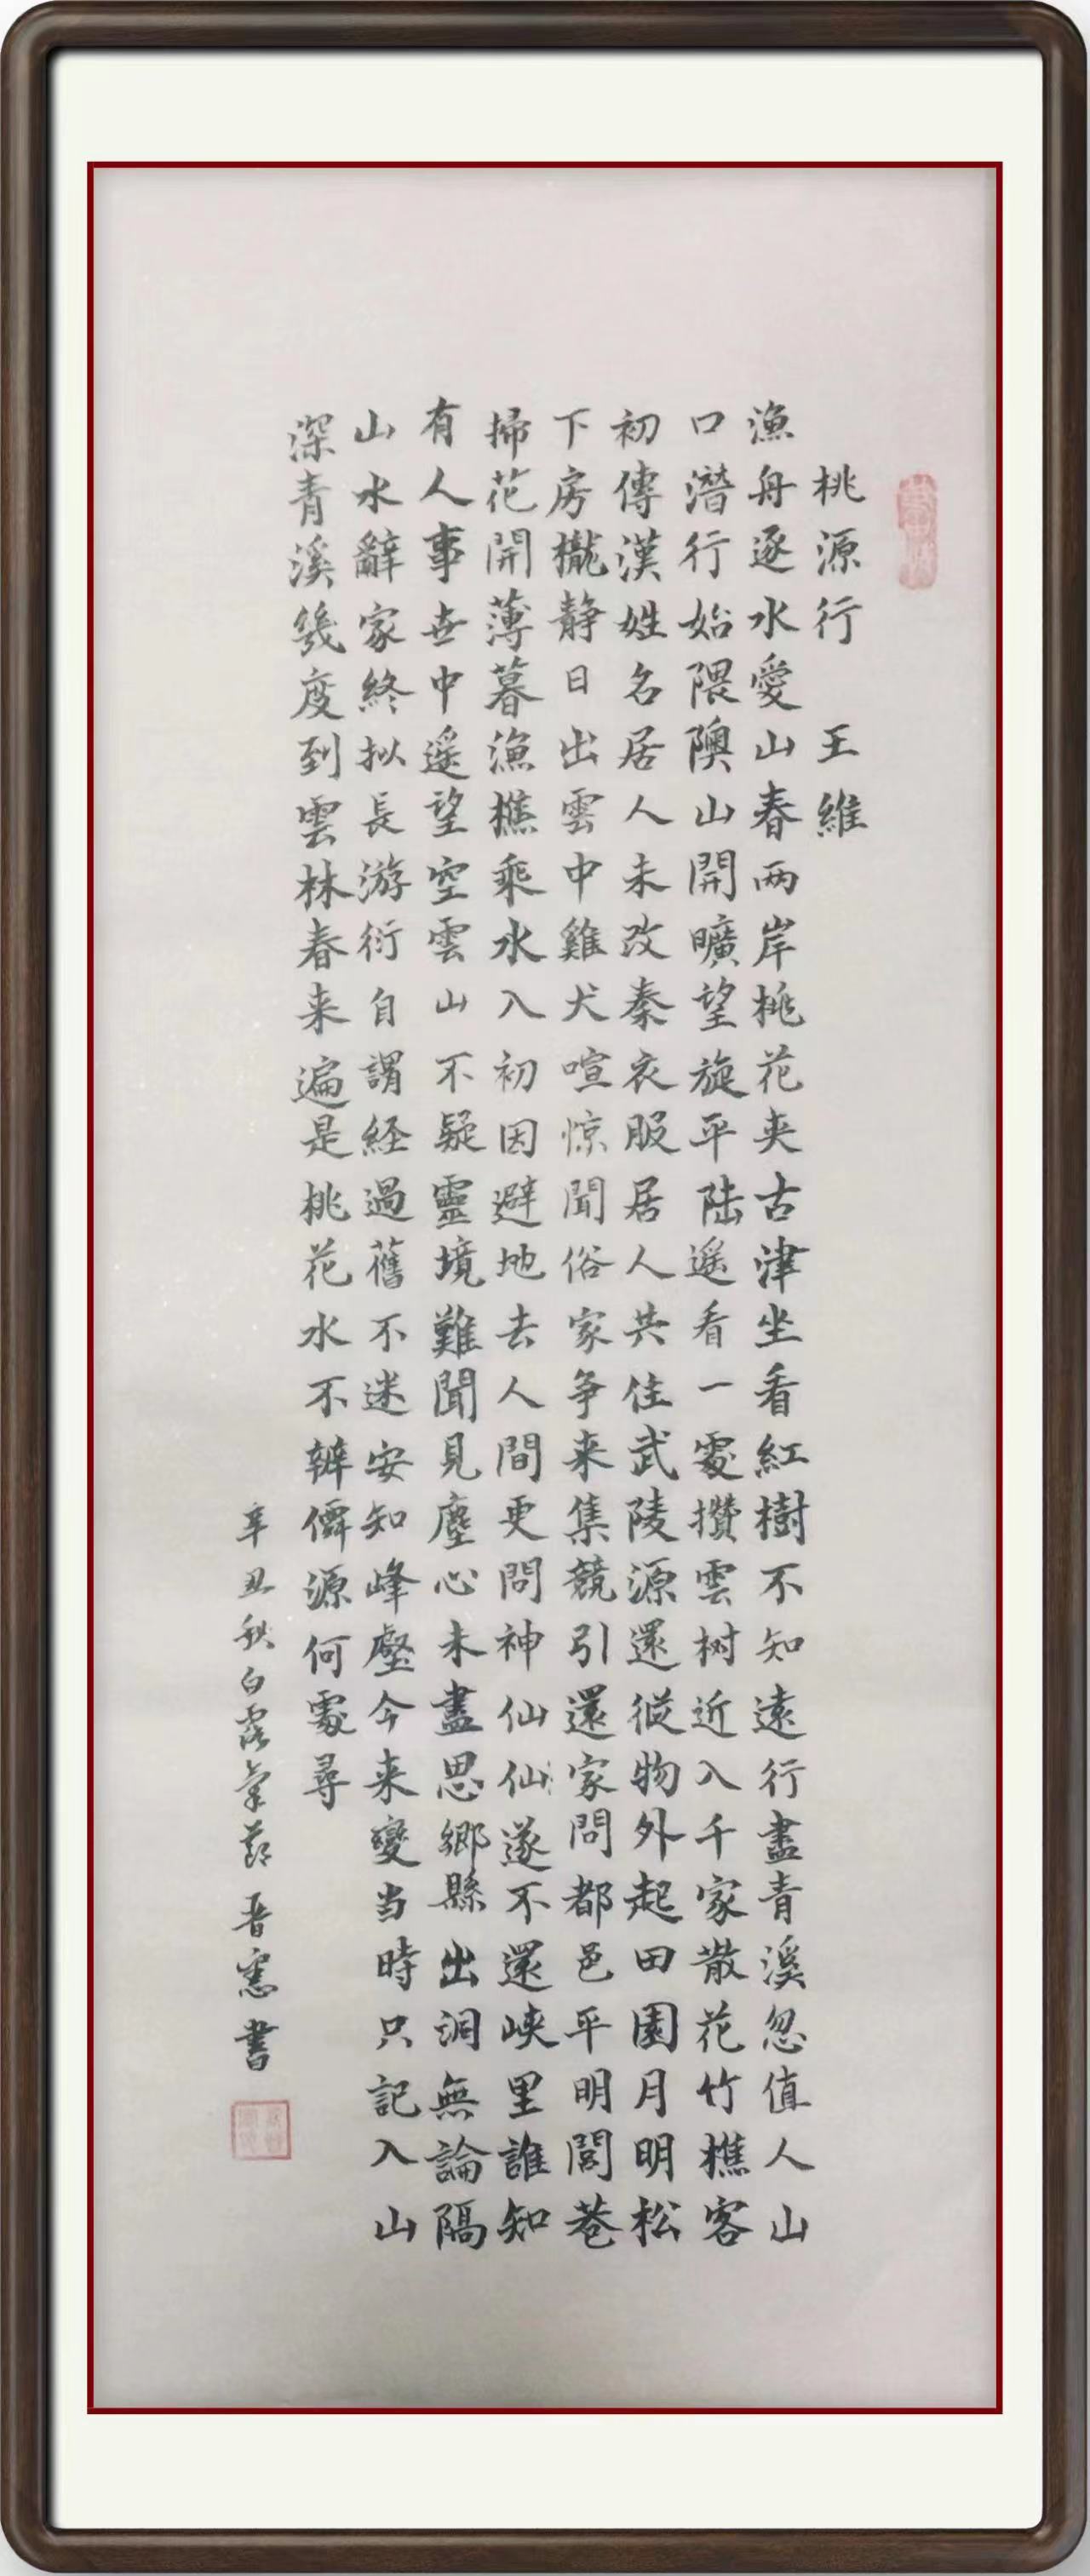 桃源行 王維
漁舟逐水愛山春两岸桃花夹古津坐看紅樹不知遠行盡青溪忽值人山
口潛行始隈隩山開曠望旋平陆遥看一處攢雲树近入千家散花竹樵客
初傳漢姓名居人未改秦衣服居人共住武陵源還從物外起田園月明松
下房櫳静日出雲中雞犬喧惊聞俗家争来集競引還家問都邑平明閭巷
掃花開薄暮漁樵乘水入初因避地去人間更問神仙仙遂不還峡里誰知
有人事世中遥望空雲山不疑靈境難聞見塵心未盡思鄉縣出洞無論隔
山水辭家終拟長游衍自謂経過舊不迷安知峰壑今来變当時只記入山
深青溪幾度到雲林春来遍是桃花水不辨僊源何處尋
辛丑秋白露 晋憲書